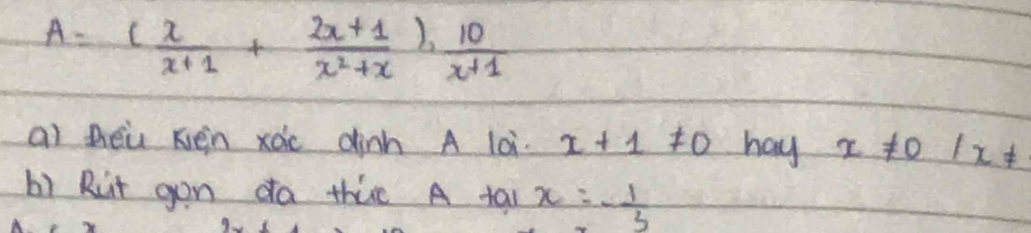 A = ( x/(x+1) + (2x+1)/(x²+x) ). 10/(x+1)
a) Điều kiện xác định A là: x + 1 ≠0 hay x ≠0 / x ≠
b) Rút gọn đa thức A tại x = -1/3